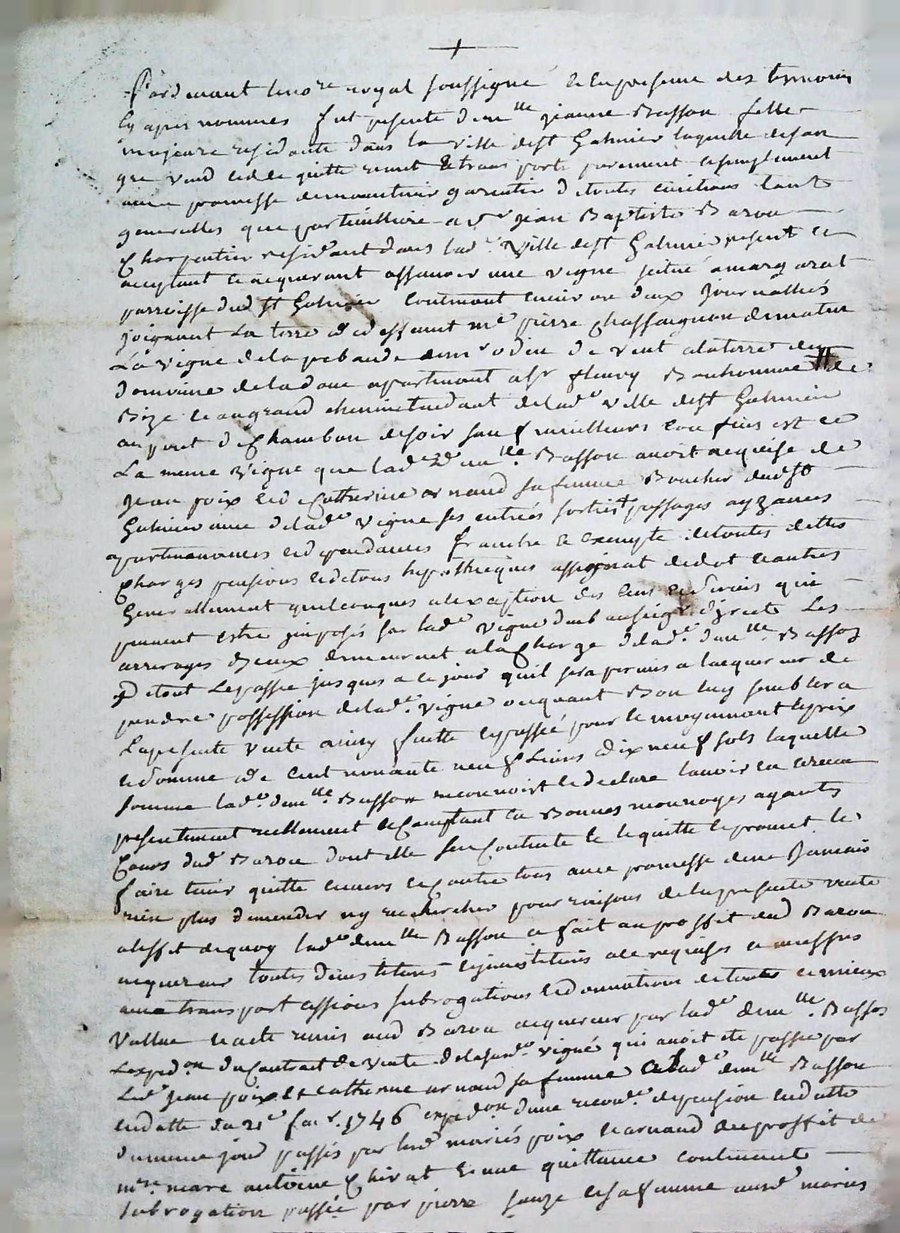 Pardevant le no.re royal soussigné & en presence des temoins
cy apres nommés fut presente dem.lle jeanne Basson fille
majeure residante dans la ville de St Galmier laquelle de son
gre vend cede quitte remet & transporte purement & simplement
avec promesse de maintenir garentir de toutes evictions tant
generalles que particulliere a s.r jean Baptiste Barou
Charpentier residant dans lad.e ville de St Galmier present et
acceptant & acquerant assavoir une vigne scitué a margarat
parroisse dud St Galmier contenant environ deux journallés
joignant la terre de m.e pierre Chassaignon de matin
La vigne de la de vent la terre du
domaine de la apartenant a sr fleury Bonhomme de
Bize & au grand chemin tendant de lad.e ville de St Galmier
au pont de Chambon de soir sauf meilleurs confins est ce
La meme vigne que lad.e dem.lle Basson avoit acquise de
jean poix et de Catherine arnaud sa femme Boucher dud St
Galmier avec de lad.e vigne ses entrées sorties passages ayzances
apartenances et dependances franche & exempte de toutes dettes
Charges pensions et de tous hypotheques assignat de dot & autres
Generallement quelconques a l'exception des cens et devoirs qui
peuvent estre imposés sur lad.e vigne
arrerages d'iceux demeurant a la Charge de lad.e dem.lle Basson
de tout le passé jusques a ce jour qu'il sera permis a l'acquereur de
prendre possession de lad.e vigne quant Bon luy semblera
La presente vente ainsy faitte & passée pour le moyennant le prix
et somme de cent nonante neuf Livres dix neuf sols laquelle
somme lad.e dem.lle Basson reconnoist & declare l'avoir eu & receu
presentement reellement & comptant en Bonnes monnoyes ayants
Cours dud Barou dont elle se Contente & le quitte & promet le
faire tenir quitte envers & contre tous avec promesse de ne Jamais
rien plus demender ny rechercher pour raisons de la presente vente
a l'effet de quoy lad.e dem.lle Basson a fait au proffit dud Barou
acquereur toutes demissitions & jnvestitions requises & necessres
avec transport cessions subrogations et
Vallue & a icelle remis aud Barou acquereur par lad.e dem.lle Basson
L'exped.on du Contrat de vente de la sus.d.e vigne qui avoit ete passée par
Led.t jean poix & Catherine arnaud sa femme a lad.e dem.lle Basson
en datte du 21.e 1746 exped.on d'une recon.ce de pension en datte
du meme jour passée par lesd mariés poix & arnaud au proffit de
m.re marc antoine Chirat & une quittance contenant
subrogation passée par pierre et sa femme ausd mariés